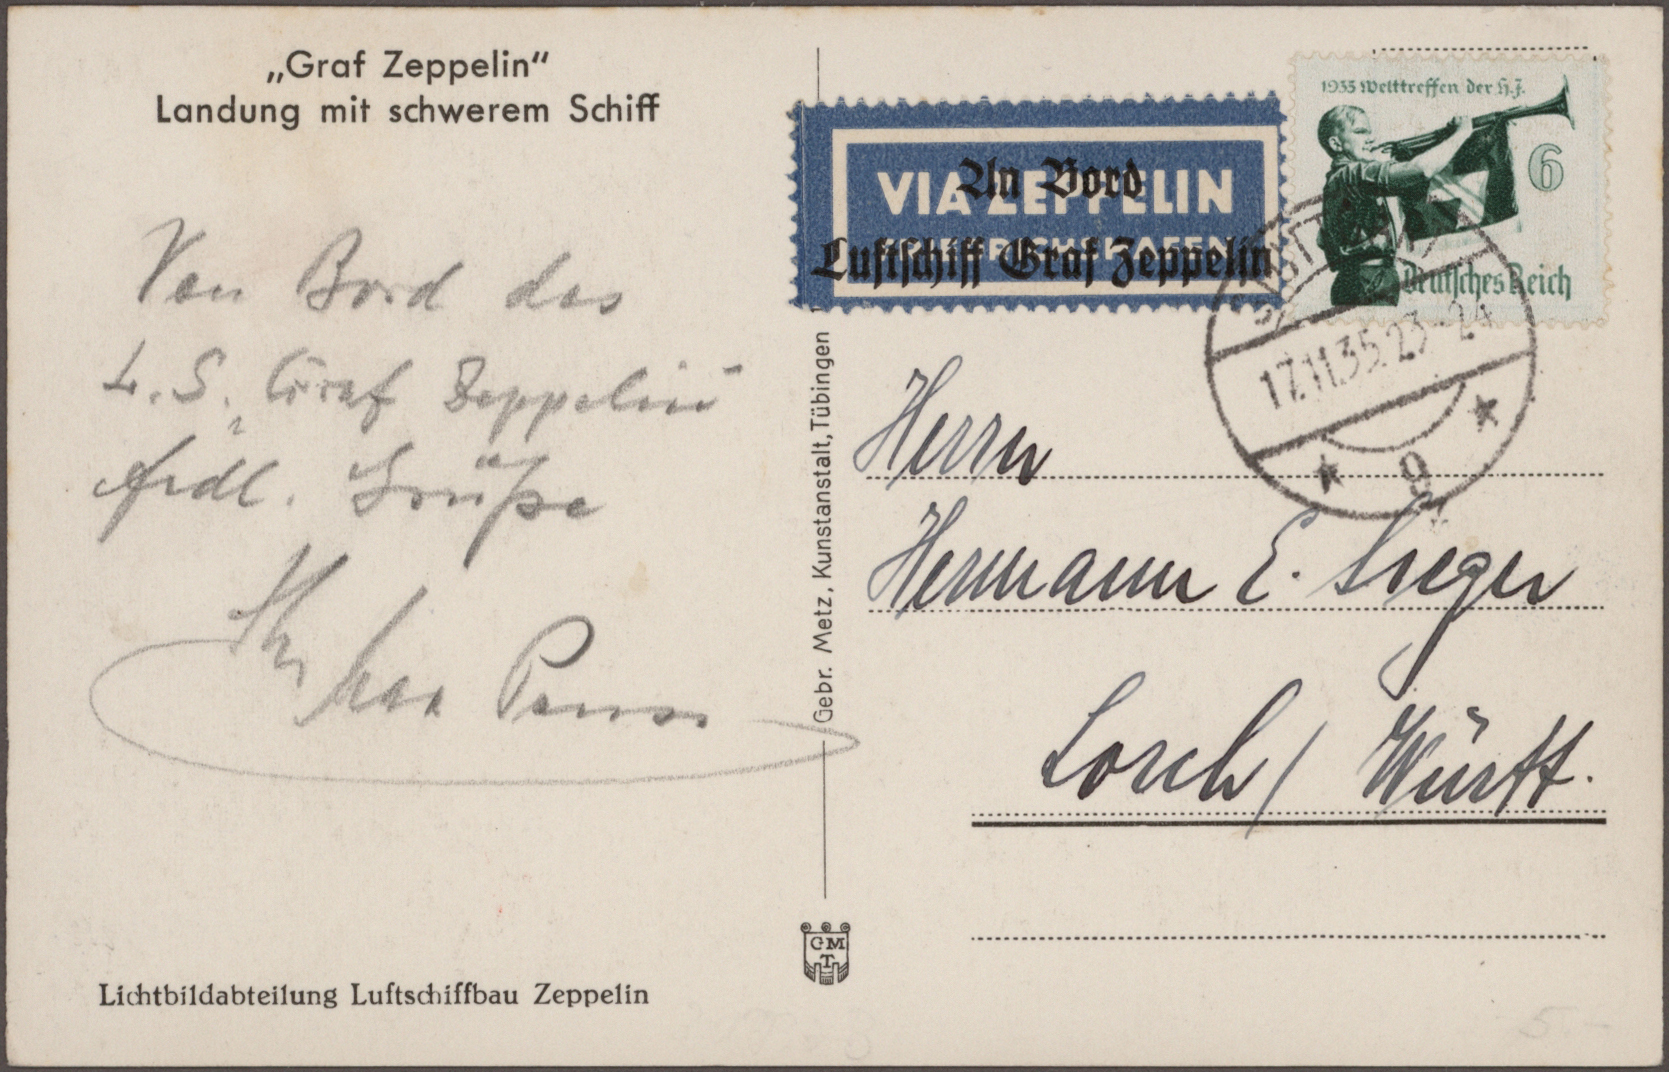 „Graf Zeppelin“
Landung mit schwerem Schiff
Von Bord des
L.S. Graf Zeppelin
frdl. Grüße
Ihr
Lichtbildabteilung Luftschiffbau Zeppelin
Gebr. Metz, Kunstanstalt, Tübingen
GMT
VIA ZEPPELIN
FRIEDRICHSHAFEN
An Bord
Luftschiff Graf Zeppelin
1935 Welttreffen der H.J.
6
Deutsches Reich
STUTTGART
17.11.35.23-24
* 9 *
Herrn
Hermann E. Sieger
Lorch / Württ.
5.-